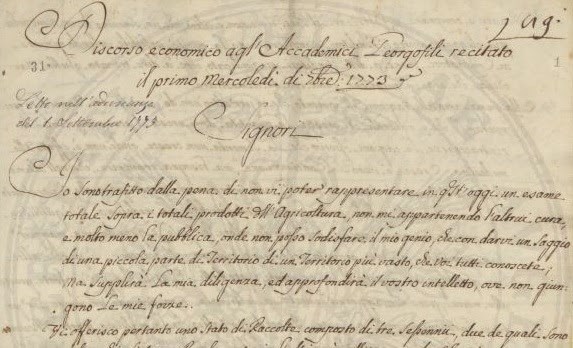 Lug.
Discorso economico agl' Accademici Georgofili recitato
31.
1
il primo Mercoledi di 7bre. 1773
Letto nell'adunanza
del 1. Settembre 1773
Signori
Io sono trafitto dalla pena di non vi poter rappresentare in quest'oggi un esame
totale sopra i totali prodotti dell'Agricoltura, non mi appartenendo l'altrui cura,
e molto meno la pubblica, onde non posso sodisfare il mio genio, che con darvi un saggio
di una piccola parte di Territorio di un Territorio più vasto, che voi tutti conoscete;
Ma supplirà la mia diligenza, ed approfondirà il vostro intelletto, ove non giun-
gono le mie forze.
Vi offerisco pertanto uno Stato di Raccolte composto di tre Sessennii, due de quali sono